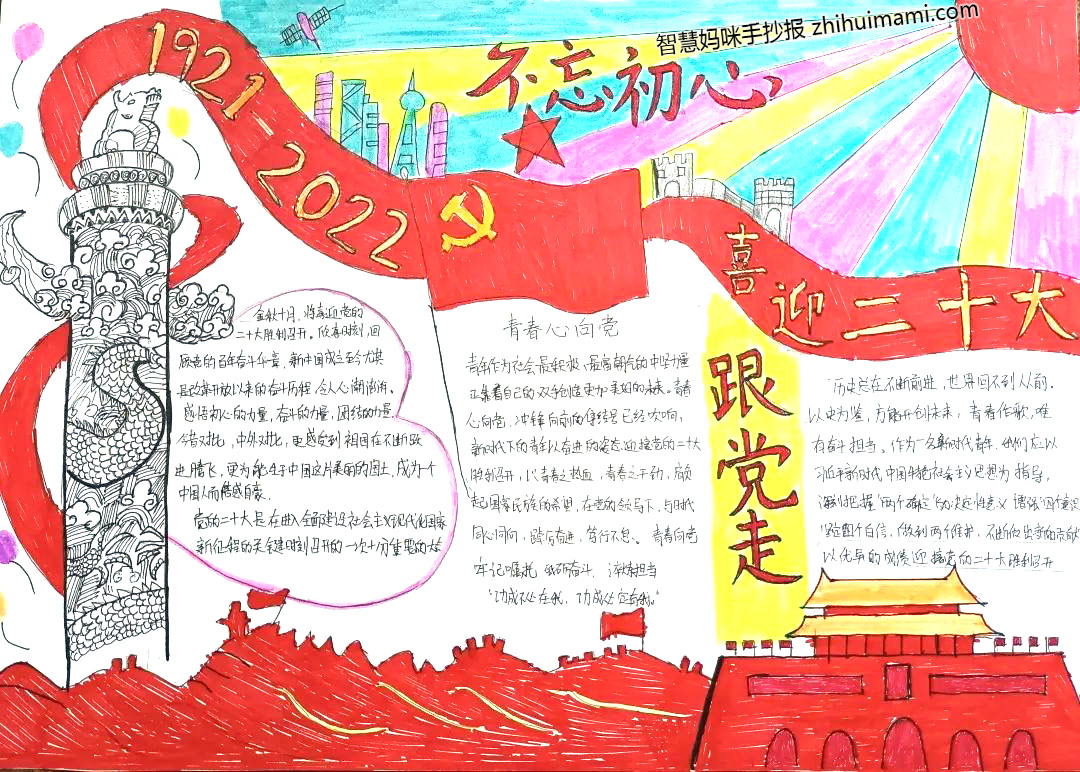 智慧妈咪手抄报 zhihuimami.com
1921-2022
不忘初心
喜迎二十大
跟党走
金秋十月,将喜迎党的
二十大胜利召开。欣喜时刻,回
的百年奋斗华章,新中国成立至今尤其
是改革开放以来的奋斗历程,令人心潮澎湃。
感悟初心的力量,奋斗的力量,团结的力量
今昔对比,中外对比,更感受到祖国在不断跃
进腾飞,更为能生于中国这片美丽的国土,成为一个
中国人而倍感自豪。
党的二十大是在进入全面建设社会主义现代化国家
新征程的关键时刻召开的一次十分重要的大
青春心向党
青年作为社会最积极、最富朝气的中坚力量
正靠着自己的双手创造更加美好的未来。青春
心向党,冲锋向前的集结号已经吹响,
新时代下的青年以奋进的姿态迎接党的二十大
胜利召开,以青春之热血,青春之干劲,
起国家民族的希望,在党的领导下,与时代
同心同向,踔厉奋进,笃行不怠。青春向党
牢记嘱托 奋斗,担当
“功成不必在我,功成必定有我。”
历史总在不断前进,世界回不到从前。
以史为鉴,方能开创未来,青春作歌,唯
有奋斗担当。作为一名新时代青年,我们应以
习近平新时代中国特色社会主义思想为指导,
深刻把握“两个确立”的决定性意义 增强“四个意识
四个自信,做到两个维护,不断做出新的贡献
以优异的成绩迎接党的二十大胜利召开